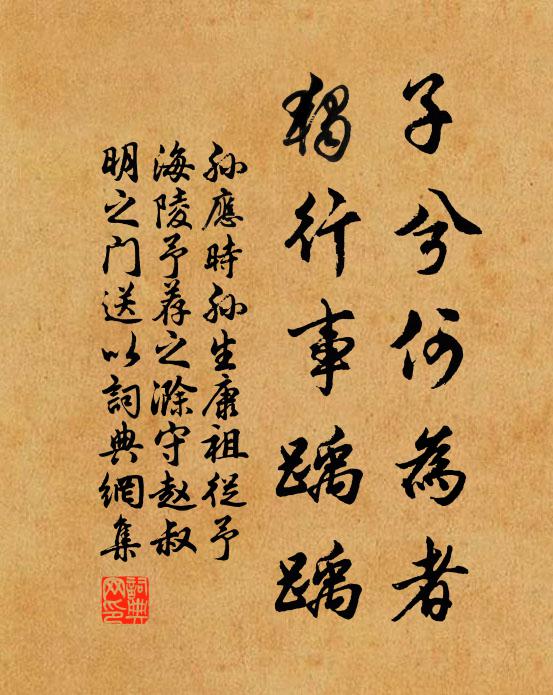 子兮何為者
獨行事踽踽
孙應時孙生康祖從予
海陵予荐之滁守赵叔
明之门送以詞典網集
詞典網印